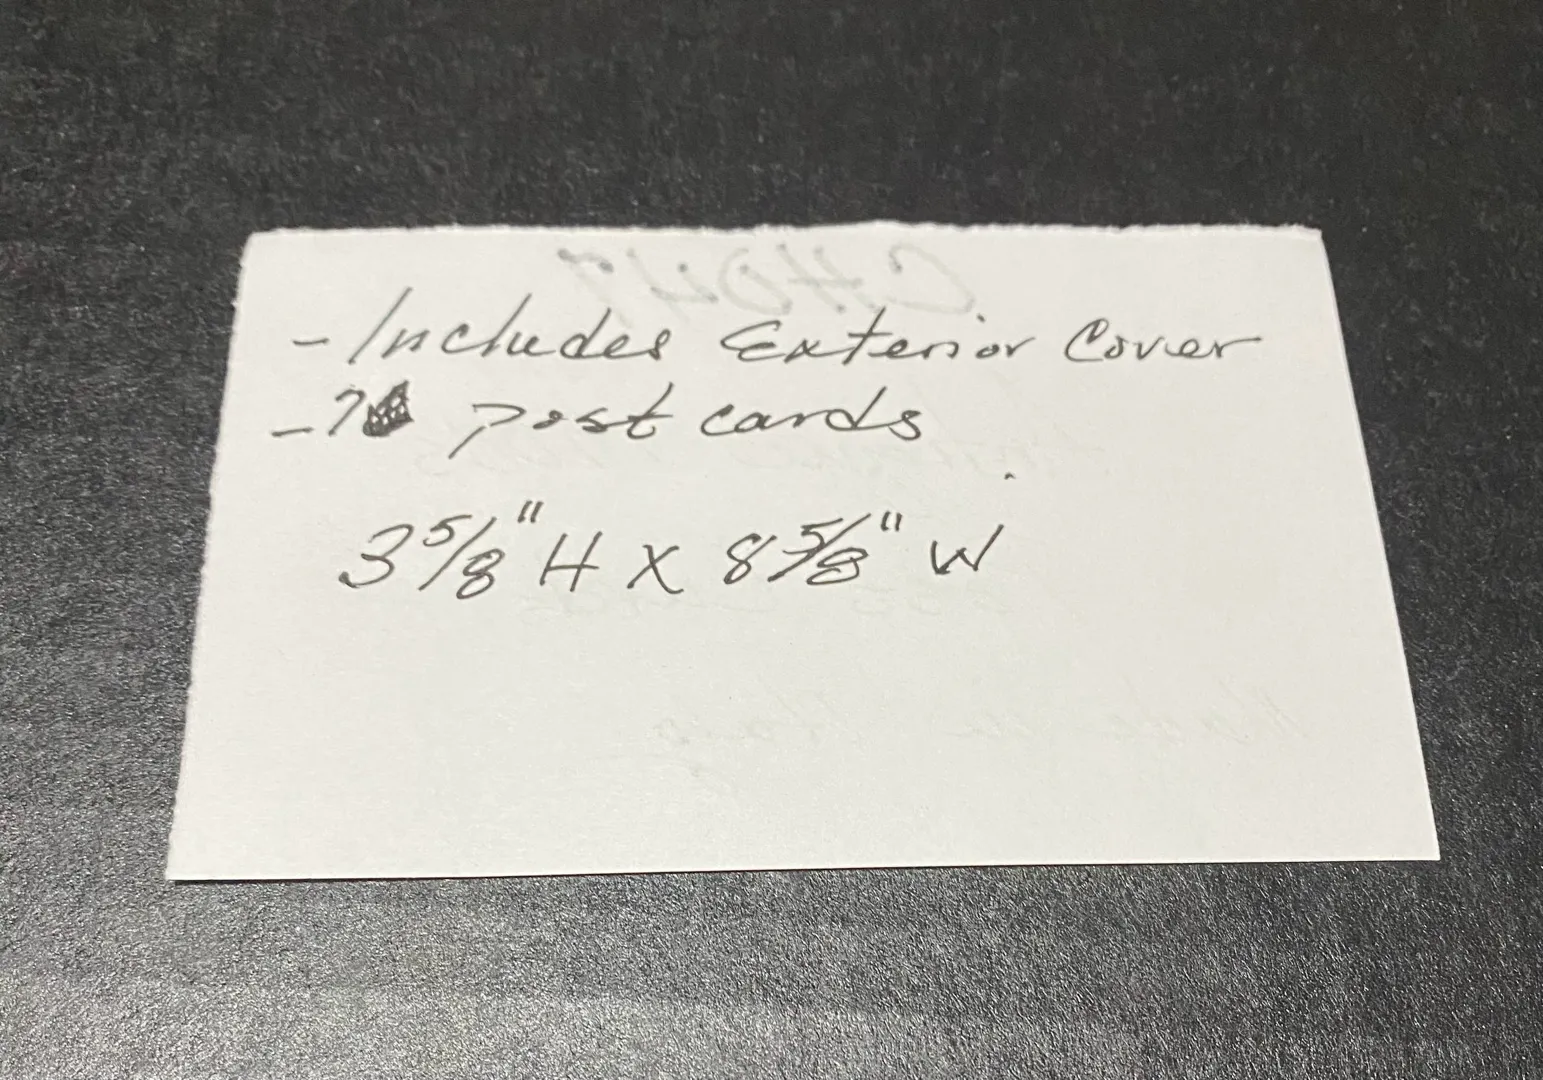 - Includes Exterior Cover
- 7 post cards
3 5/8" H X 8 5/8" W